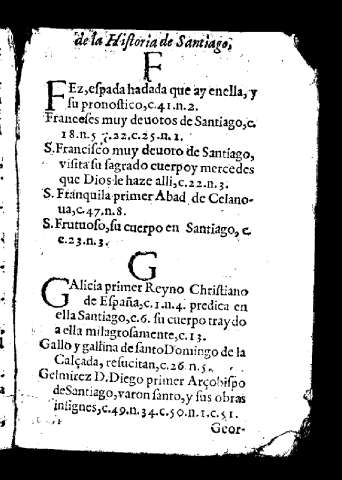 de la Historia de Santiago,
F
FEz, espada hadada que ay enella, y
su pronostico, c.41.n.2.
Franceses muy deuotos de Santiago, c.
18.n.5 7.22.c.25.n.1.
S. Francisco muy deuoto de Santiago,
visita su sagrado cuerpo y mercedes
que Dios le haze alli, c.22.n.3.
S. Franquila primer Abad de Celano-
ua, c.47.n.8.
S. Frutuoso, su cuerpo en Santiago, c.
c.23.n.3.
G
GAlicia primer Reyno Christiano
de España, c.1.n.4. predica en
ella Santiago, c.6. su cuerpo traydo
a ella milagrosamente, c.13.
Gallo y gallina de santo Domingo de la
Calçada, resucitan, c.26.n.5.
Gelmirez D. Diego primer Arçobispo
de Santiago, varon santo, y sus obras
insignes, c.49.n.34.c.50.n.1.c.51.
Geor-